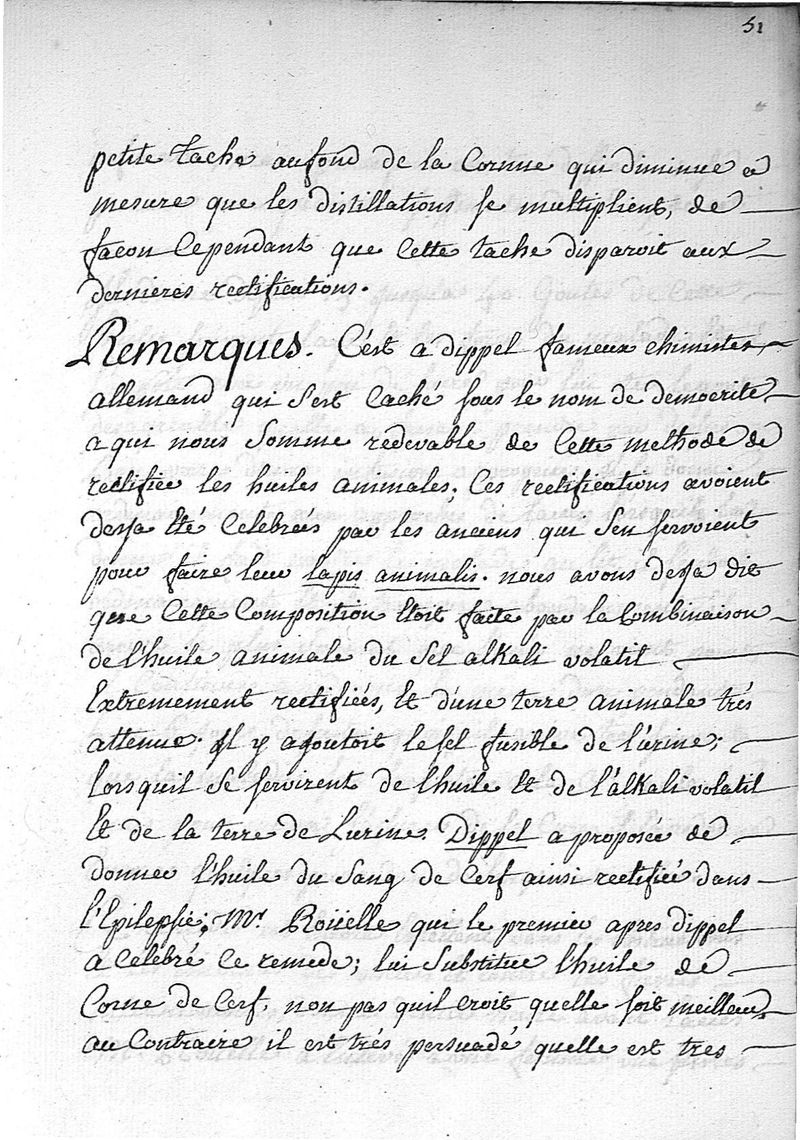 51
petite tache au fond de la Cornue qui diminue a
mesure que les distillations se multiplient, de
facon Cependant que Cette tache disparoit aux
dernieres rectifications.
Remarques. C'est a dippel fameux chimiste
allemand qui s'est Caché sous le nom de democrite
a qui nous somme redevable de Cette methode de
rectifiée les huiles animales; Ces rectifications avoient
desja été Celebrées par les anciens qui s'en servoient
pour faire leur lapis animalis. nous avons desja dit
que Cette Composition étoit faite par la Combinaison
de l'huile animale du Sel alkali volatil
Extremement rectifiés, Et d'une terre animale trés
attenue. Il y ajoutoit le sel fusible de l'urine;
lorsquil se servirent de l'huile Et de l'alkali volatil
Et de la terre de Lurine. Dippel a proposée de
donner l'huile du Sang de Cerf ainsi rectifiée dans
l'Epilepsie; Mr. Roüelle qui le premier apres dippel
a Célébré Ce remede; lui Substitue l'huile de
Corne de Cerf, non pas quil croit quelle soit meilleur
au Contraire il est trés persuadé quelle est tres